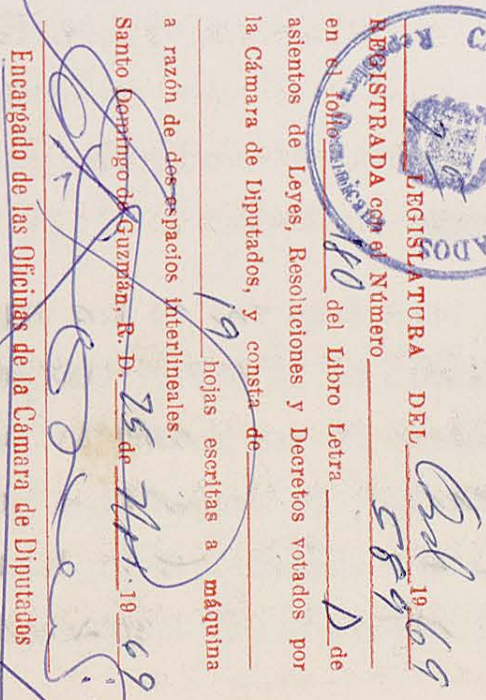 LEGISLATURA DEL Ord 1969
REGISTRADA con el Número 589
en el folio 180 del Libro Letra D de
asientos de Leyes, Resoluciones y Decretos votados por
la Cámara de Diputados, y consta de
19 hojas escritas a máquina
a razón de dos espacios interlineales.
Santo Domingo de Guzmán, R. D. 25 de 19 69
Encargado de las Oficinas de la Cámara de Diputados